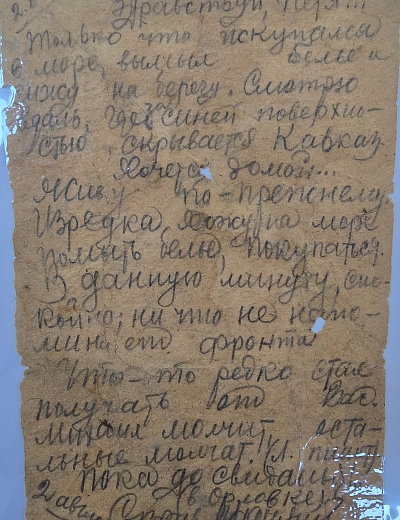 Здравствуй, Петя!..
Только что искупался
в море, вымыл белье и
сижу на берегу. Смотрю
вдаль, где в синей поверхно-
стью скрывается Кавказ.
Хочется домой...
Живу по-прежнему.
Изредка, хожу на море
помыть белье, покупаться.
В данную минуту, спо-
койно; ни что не напо-
минает фронта
Что-то редко стал
получать от Вас.
Михаил молчит, оста-
льные молчат.
Пока до свиданья
в Орловке
2 авг.